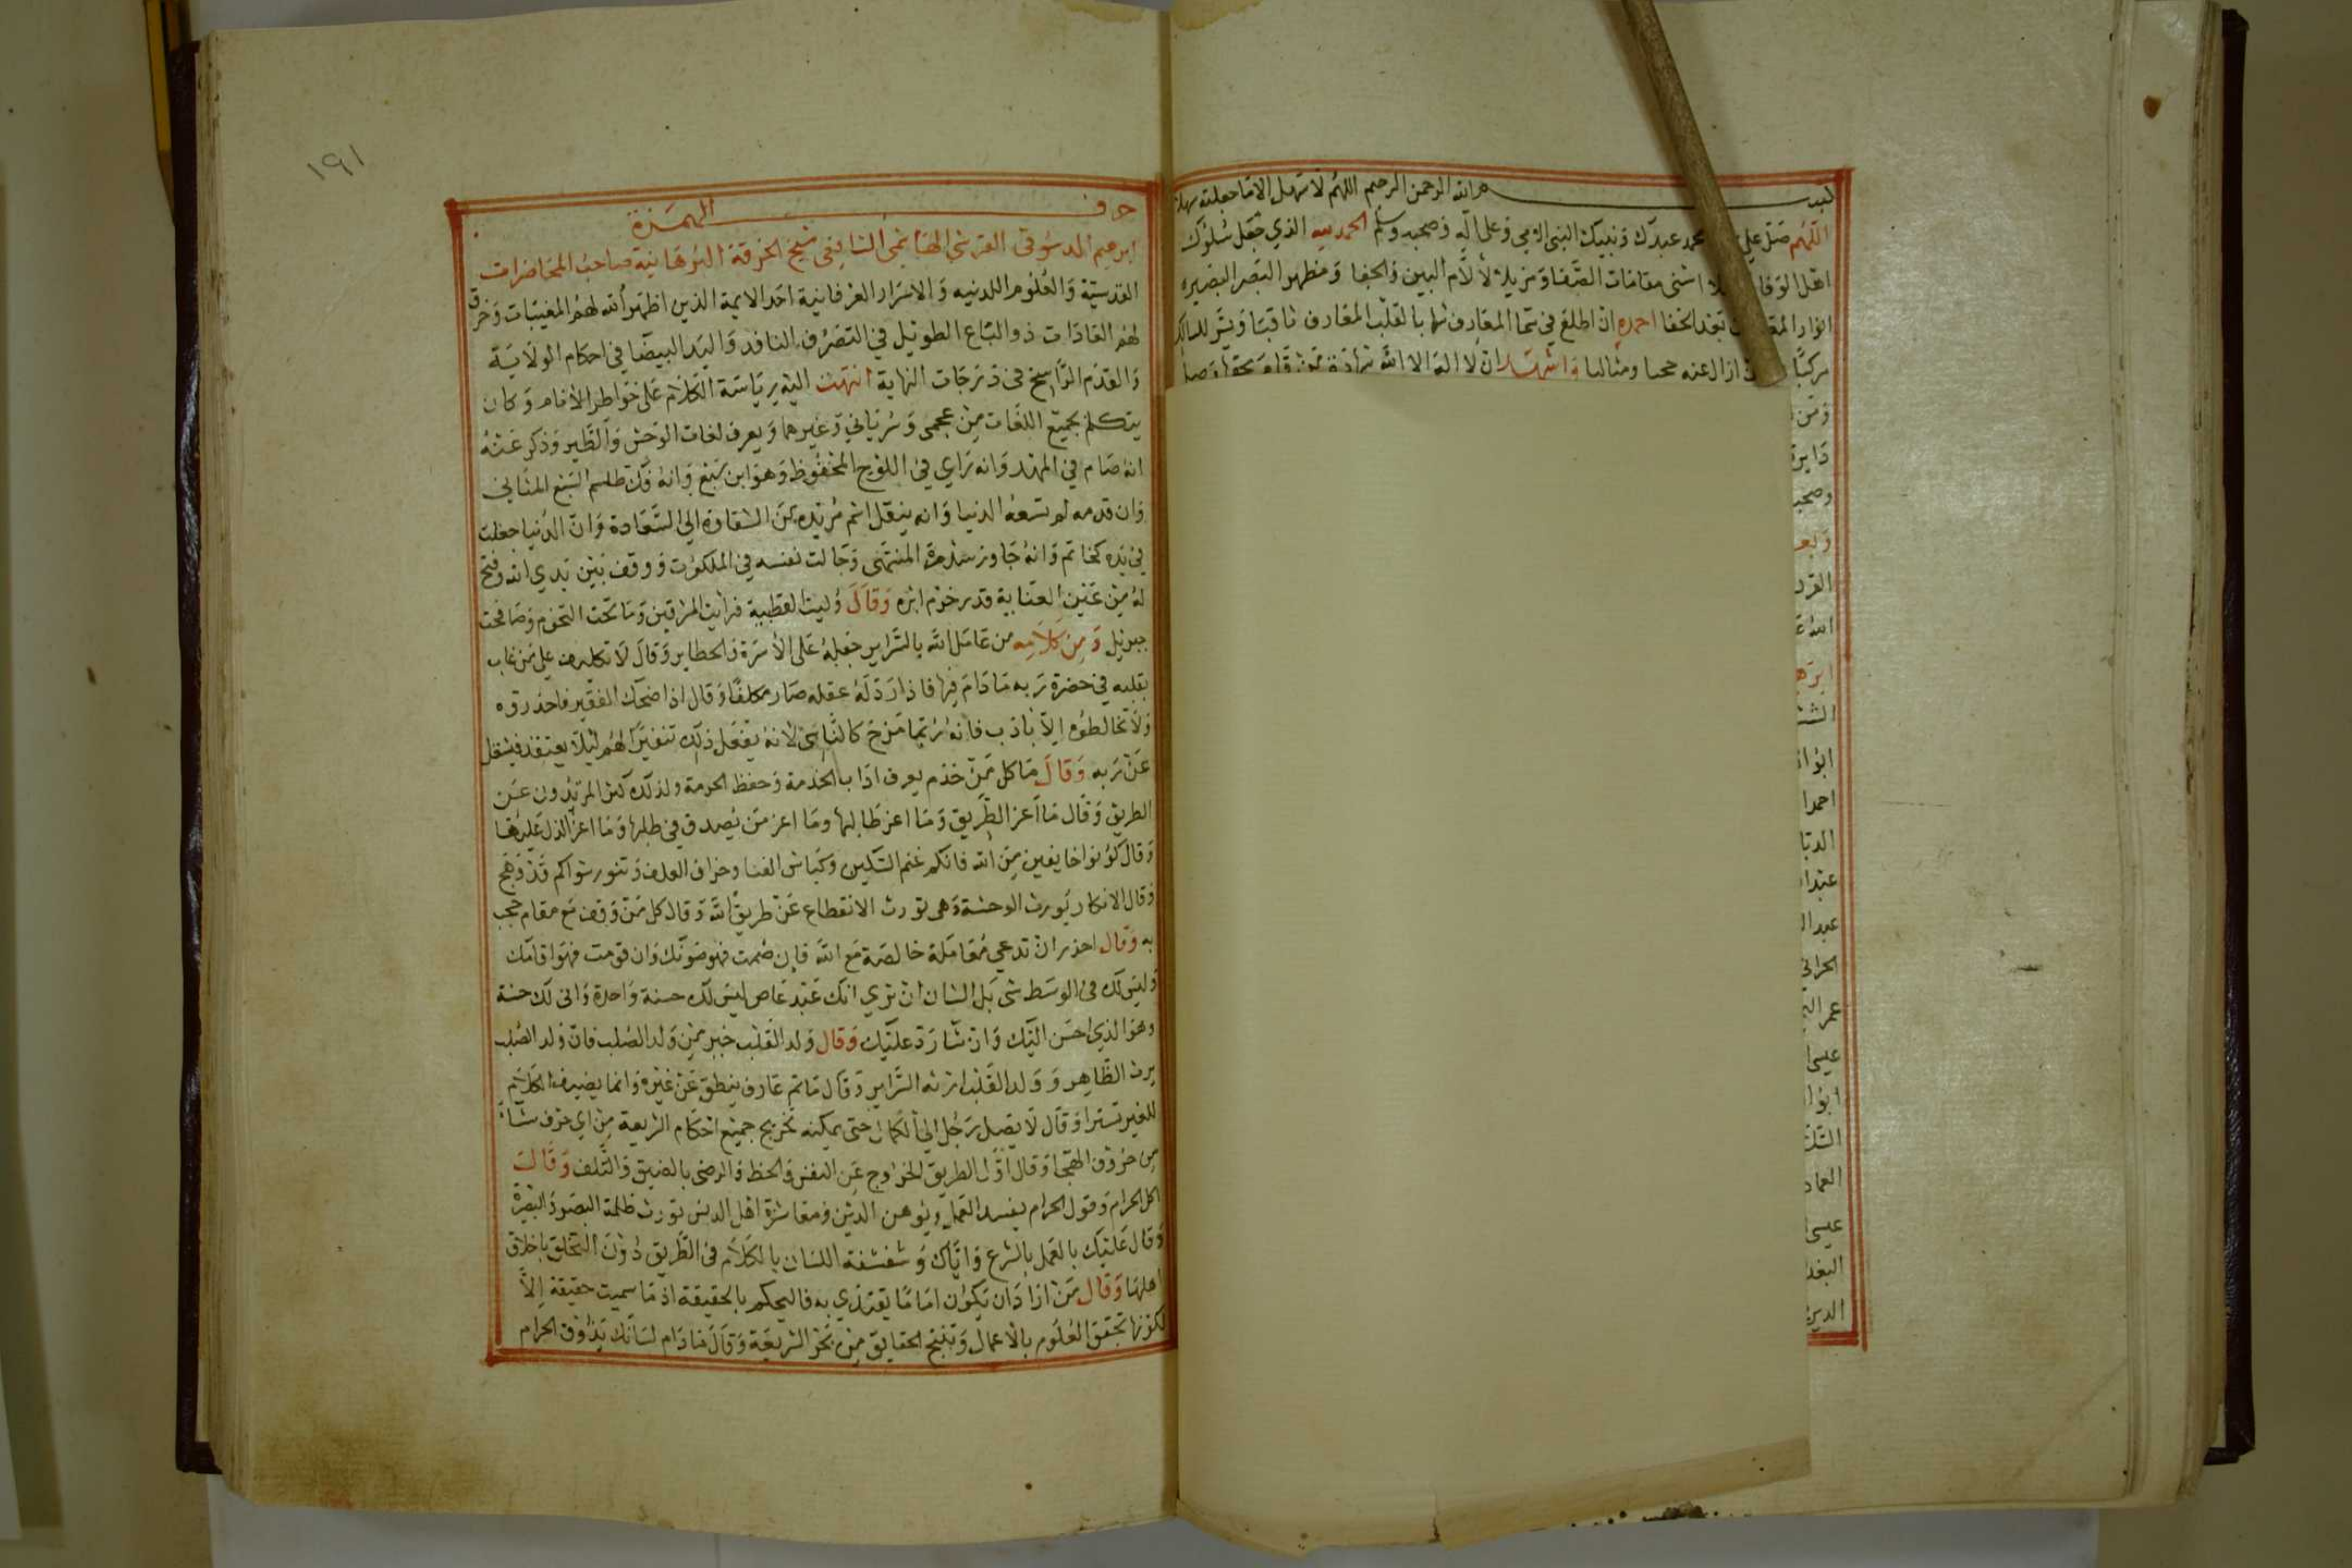 بسم الله الرحمن الرحيم اللهم لا سهل الا ما جعلته سهلا
اللهم صل على محمد عبدك ونبيك النبي الامي وعلى اله وصحبه وسلم الحمد لله الذي جعل سلوك
اهل الوفا اسنى مقامات الصفا ومزيلا لالام البين والجفا ومظهر البصر البصيره
انوار بعد الخفا احمده ان اطلع في سما المعارف شهابا لقلب المعارف ثاقبا ويسر للسالك
مركبا ازال عنه حجبا ومثالبا واشهد ان لا اله الا الله شهادة
ومن
دايرة
وصحبه
وبعد
القر
الله
ابره
الشت
ابو ا
احمد ا
الدبا
عبد ا
عبد ال
الحراني
عمر ال
عيسى
ابو ا
التل
العماد
عيسى
البغد
الدين
١٩١
حرف الهمزة
ابرهيم الدسوقي القرشي الهاشمي الشافعي شيخ الخرقة البرهانية صاحب المحاضرات
القدسية والعلوم اللدنيه والاسرار العرفانية احد الايمة الذين اظهر الله لهم المغيبات وخرق
لهم العادات ذو الباع الطويل في التصرف النافذ واليد البيضا في احكام الولاية
والقدم الراسخ في درجات النهاية انتهت اليه برياسة الكلام على خواطر الانام وكان
يتكلم بجميع اللغات من عجمي وسرياني وغيرهما ويعرف لغات الوحش والطير وذكر عنه
انه صام في المهد وانه راي في اللوح المحفوظ وهو ابن سبع وانه فك طلسم السبع المثاني
وان قدمه لم تسعه الدنيا وانه ينقل اسم مريده من الشقاوة الى السعادة وان الدنيا جعلت
في يده كخاتم وانه جاوز سدرة المنتهى وجالت نفسه في الملكوت ووقف بين يدي الله وفتح
له من عين العناية قدر خرم ابره وقال وليت القطبية فرايت المشرقين وما تحت التخوم وصافحت
جبريل ومن كلامه من عامل الله بالسراير جعله على الاسرة والحظاير وقال لا تكليف على من غاب
بقلبه في حضرة ربه ما دام فيها فاذا رد له عقله صار مكلفا وقال اذا ضحك الفقير فاحذروه
ولا تخالطوه الا بادب فانه ربما مزح كالناس لانه يفعل ذلك تنفيرا لهم ليلا يعتقد فيشغل
عن ربه وقال ما كل من خدم يعرف اداب الخدمة وحفظ الحرمة ولذلك كثر المرتدون عن
الطريق وقال ما اعز الطريق وما اعز طالبها وما اعز من يصدق في طلبها وما اعز الدل عليها
وقال كونوا خايفين من الله فانكم غنم السكين وكباش الفنا وخراف العلف وتنور شواكم قد وهج
وقال الانكار يورث الوحشة وهي تورث الانقطاع عن طريق الله وقال كل من وقف مع مقام حجب
به وقال احذر ان تدعي معاملة خالصة مع الله فان صمت فهو صومك وان قومت فهو اقامك
وليس لك في الوسط شى بل الشان ان ترى انك عبد عاص ليس لك حسنة واحدة وانى لك حسنة
وهو الذي احسن اليك وان شا رد عليك وقال ولد القلب خير من ولد الصلب فان ولد الصلب
يرث الظاهر وولد القلب ارثه السراير وقال ما تم عارف ينطق عن غيره وانما يضيف الكلام
للغير تسترا وقال لا يصل رجل الى الكمال حتى يمكنه تخريج جميع احكام الشريعة من اي حرف شاء
من حروف الهجا وقال اول الطريق الخروج عن النفس والحظ والرضى بالضيق والتلف وقال
اكل الحرام وقول الحرام يفسد العمل ويوهن الدين ومعاشرة اهل الدنس تورث ظلمة البصر والبصيرة
وقال عليك بالعمل بالشرع واياك وشقشقة اللسان بالكلام في الطريق دون التخلق باخلاق
اهلها وقال من اراد ان يكون اماما يقتدي به فاليحكم بالحقيقة اذ ما سميت حقيقة الا
لكونها تحقق العلوم بالاعمال وتنتج الحقايق من بحر الشريعة وقال ما دام لسانك يذوق الحرام